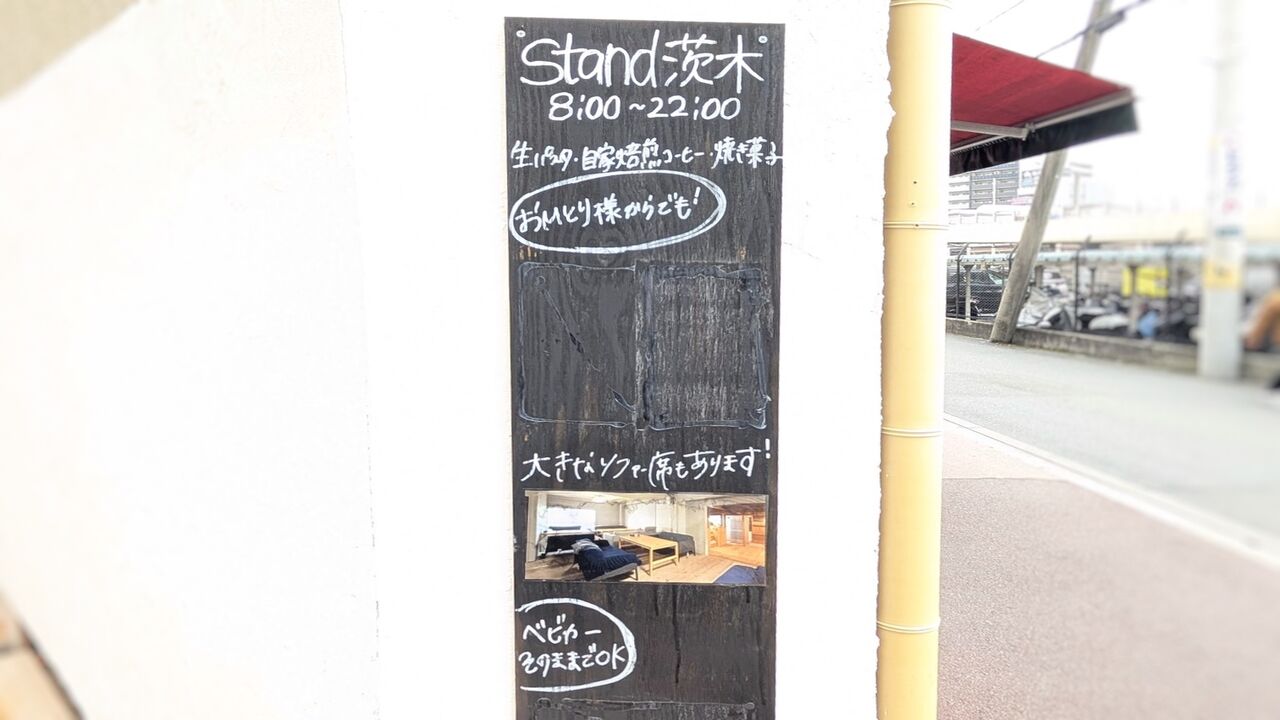 Stand茨木
8:00~22:00
生パスタ・自家焙煎コーヒー・焼き菓子
おひとり様からでも!
大きなソファー席もあります!
ベビカー
そのままでOK